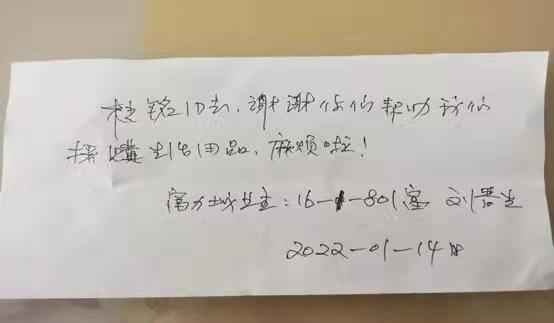 谢谢你们帮助我们
採購生活用品,麻烦啦!
富力城业主:16-1-801室 刘晋生
2022-01-14日